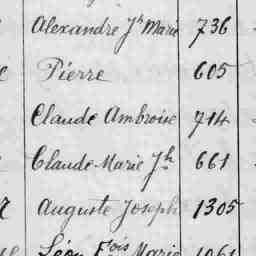 Alexandre Jh Marie 736
Pierre 605
Claude Ambroise 714
Claude-Marie Jh 661
Auguste Joseph 1305
Léon Fçois Marie 1061